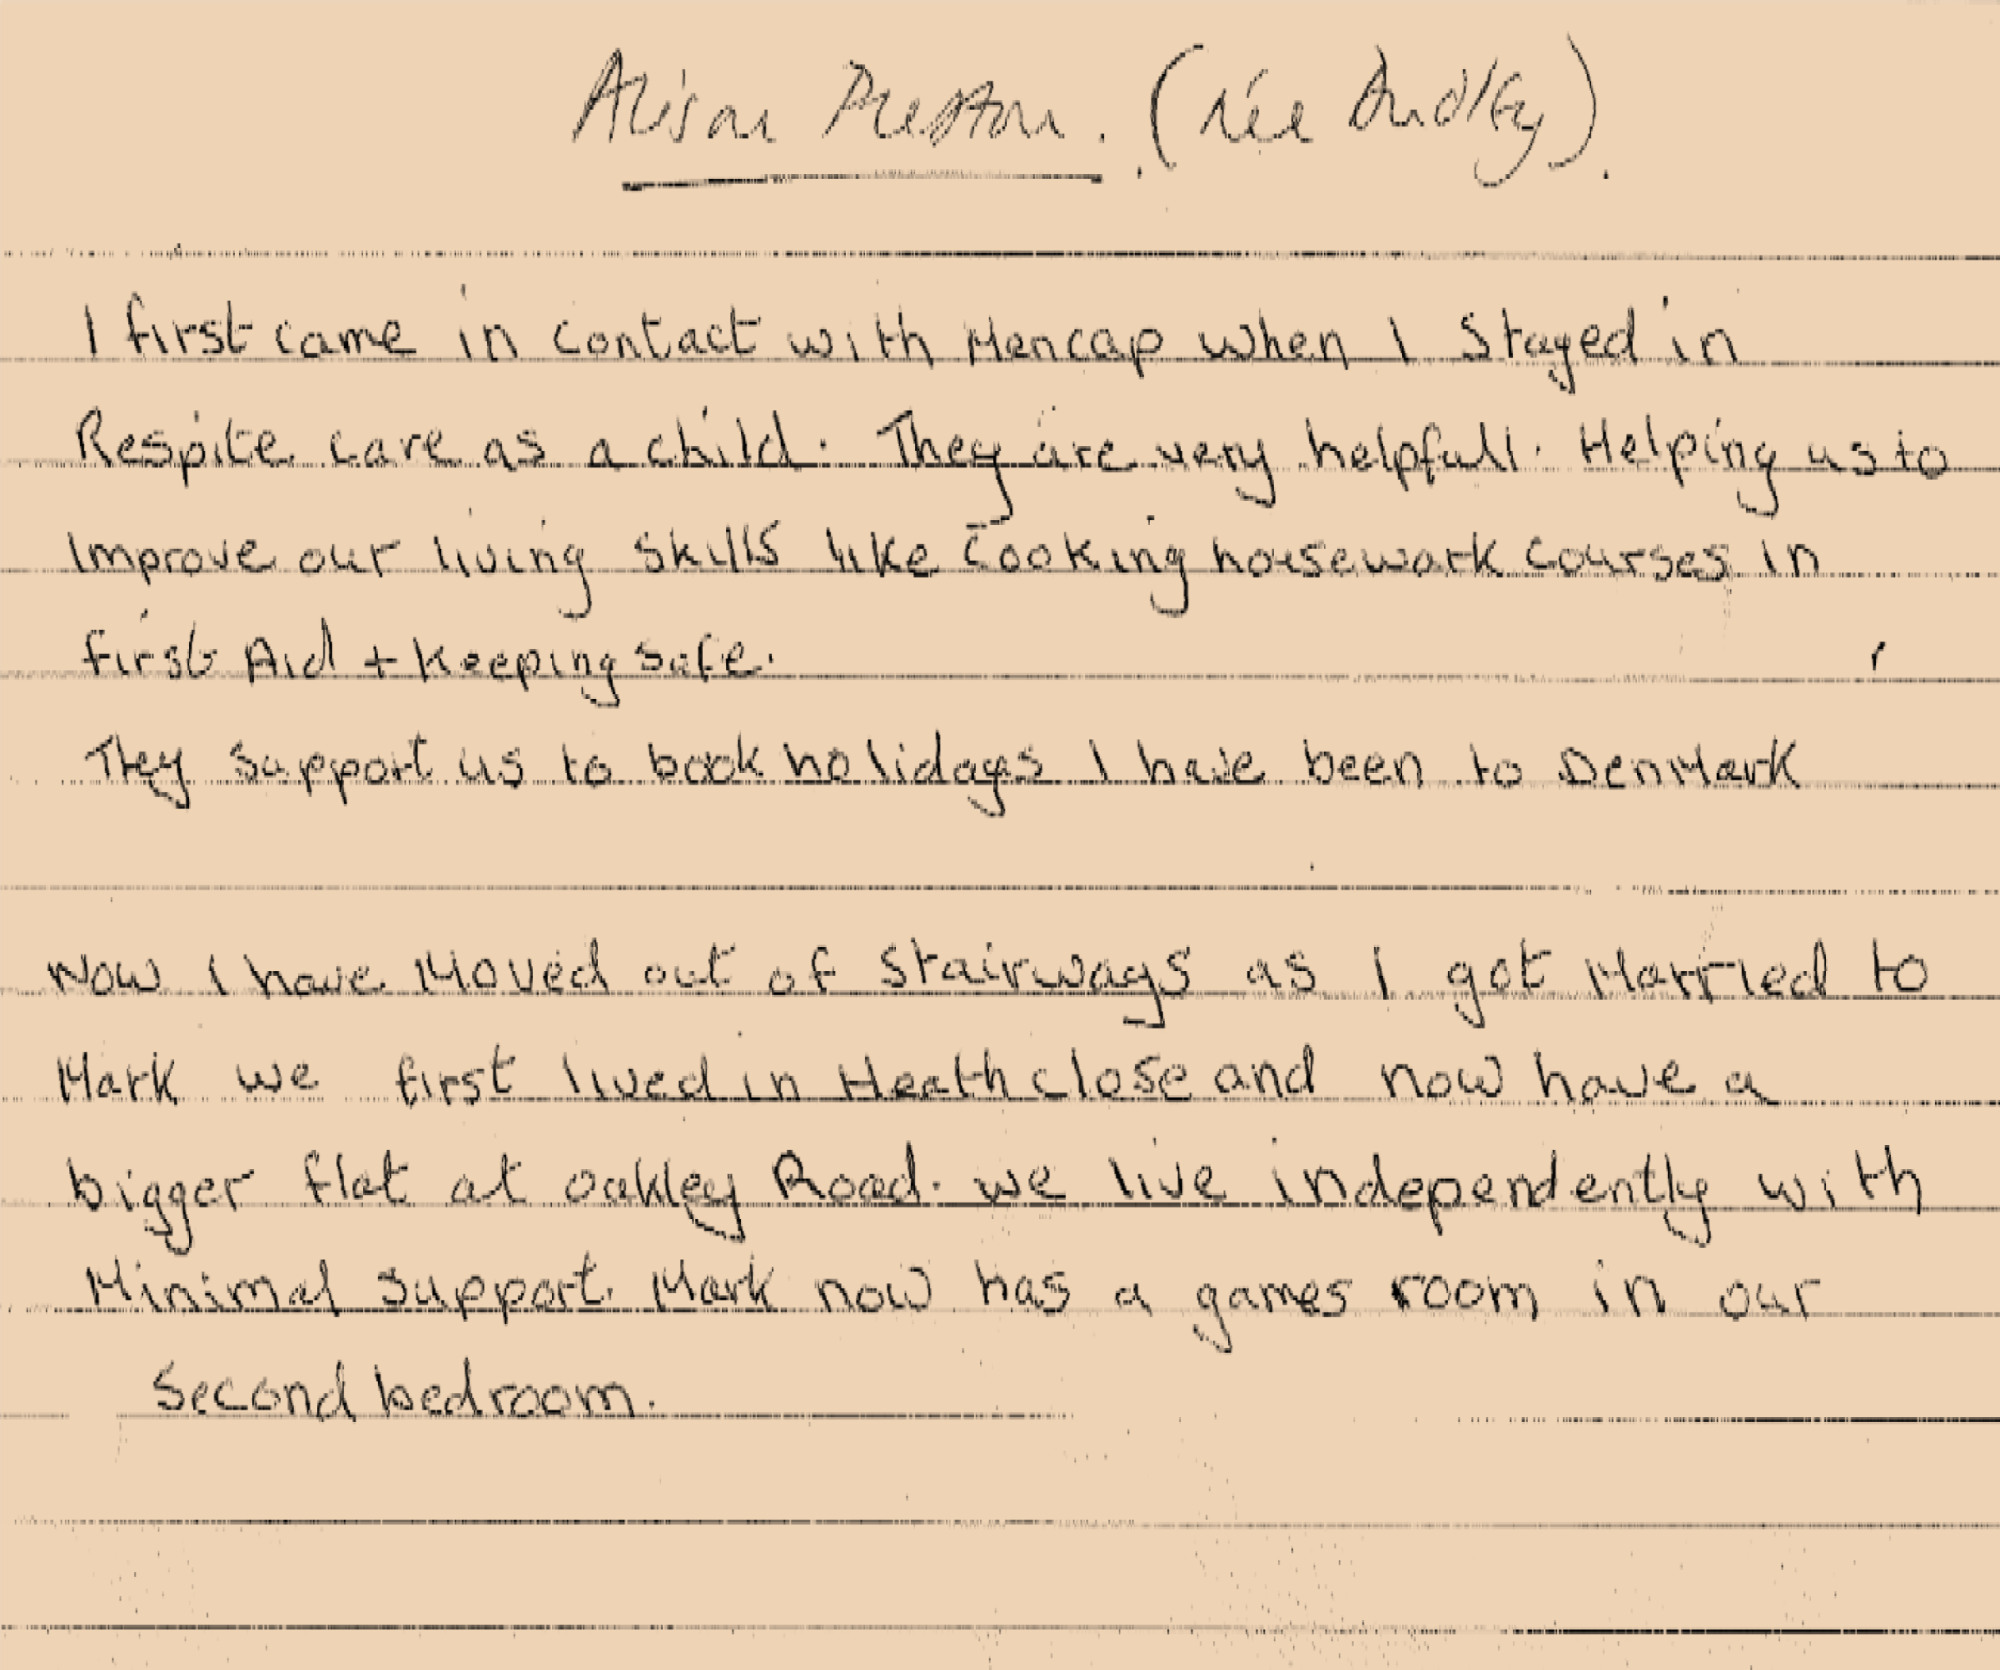 Alison Preston. (née Audley).
I first came in contact with Mencap when I stayed in
Respite care as a child. They are very helpfull. Helping us to
improve our living skills like cooking housework courses in
first Aid + keeping safe.
They support us to book holidays I have been to Denmark
Now I have moved out of Stairways as I got married to
Mark we first lived in Heath close and now have a
bigger flat at oakley Road. we live independently with
Minimal support. Mark now has a games room in our
second bedroom.